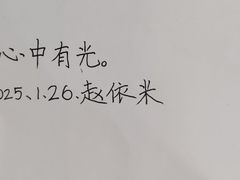 心中有光。
025、1.26.赵依米